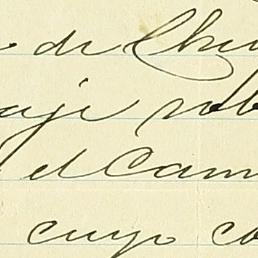 de Chi
aje sob
el Cam
cuyo co